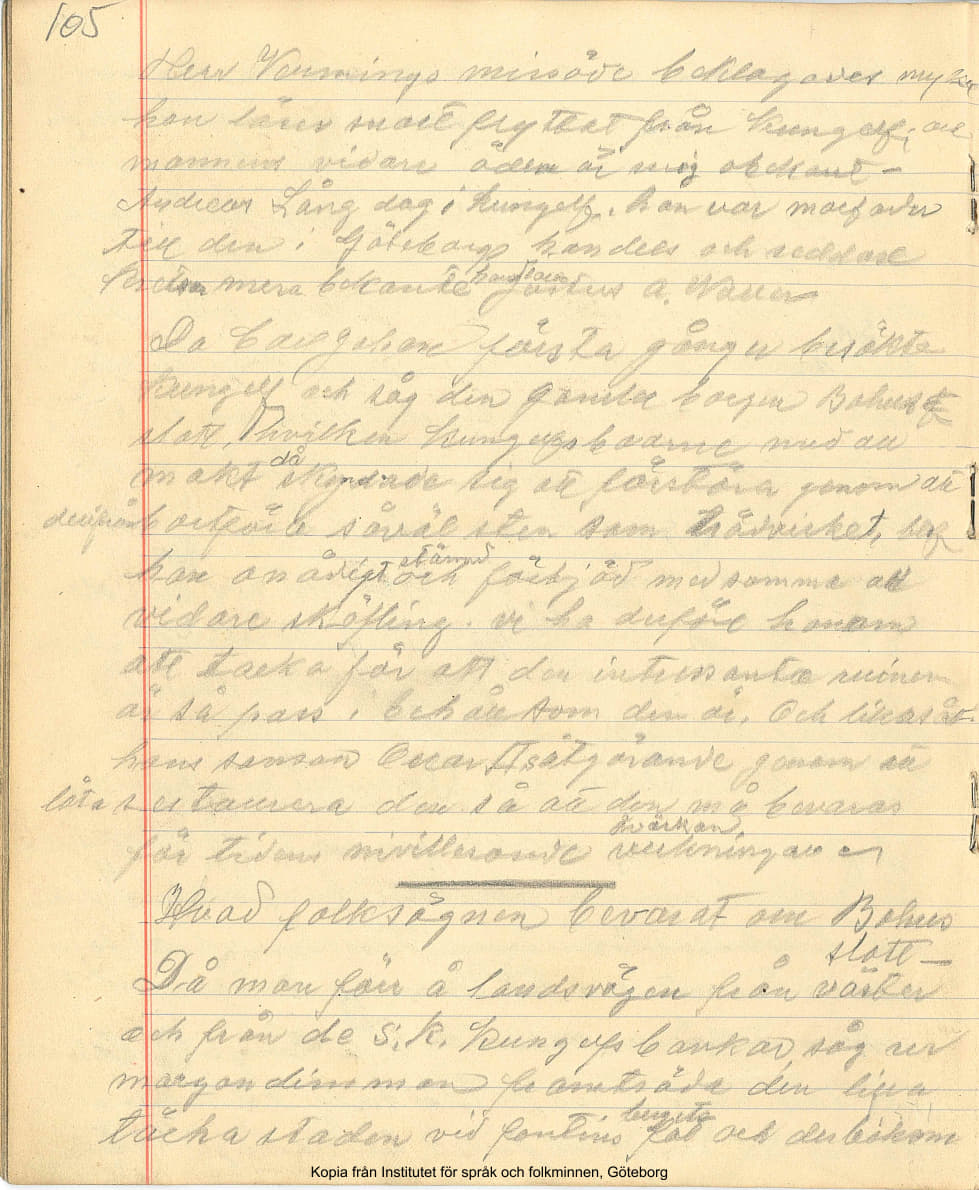 105
Herr Vennings missöde beklagades mycket
han lärer snart flyttat från Kungelf, och
mannens vidare öden är mig obekant –
Andreas Lång dog i Kungelf, han var morfader
till den i Göteborgs handels och
kretsar mera bekante handlaren Justus A. Waller
Då Carl Johan första gången besökte
Kungelf och såg den gamla borgen Bohus
slott, hvilken Kungelfsboarne med all
makt då skyndade sig att förstöra genom att
derifrån bortföra såväl sten som trädvirket, blef
han onådigt stämd och förbjöd med samma all
vidare sköfling. vi ha derför honom
att tacka för att den intressanta ruinen
är så pass i behåll som den är. Och likaså
hans sonson Oscar II åtgörande genom att
låta restaurera den så att den må bevaras
för tidens nivillerande åverkan verkningar
Hvad folksägnen bevarat om Bohus
slott –
Då man förr å landsvägen från väster
och från de s.k. Kungelfs backar, såg ur
morgondimman framträda den lilla
täcka staden vid fontins bergets fot och der bakom
Kopia från Institutet för språk och folkminnen, Göteborg